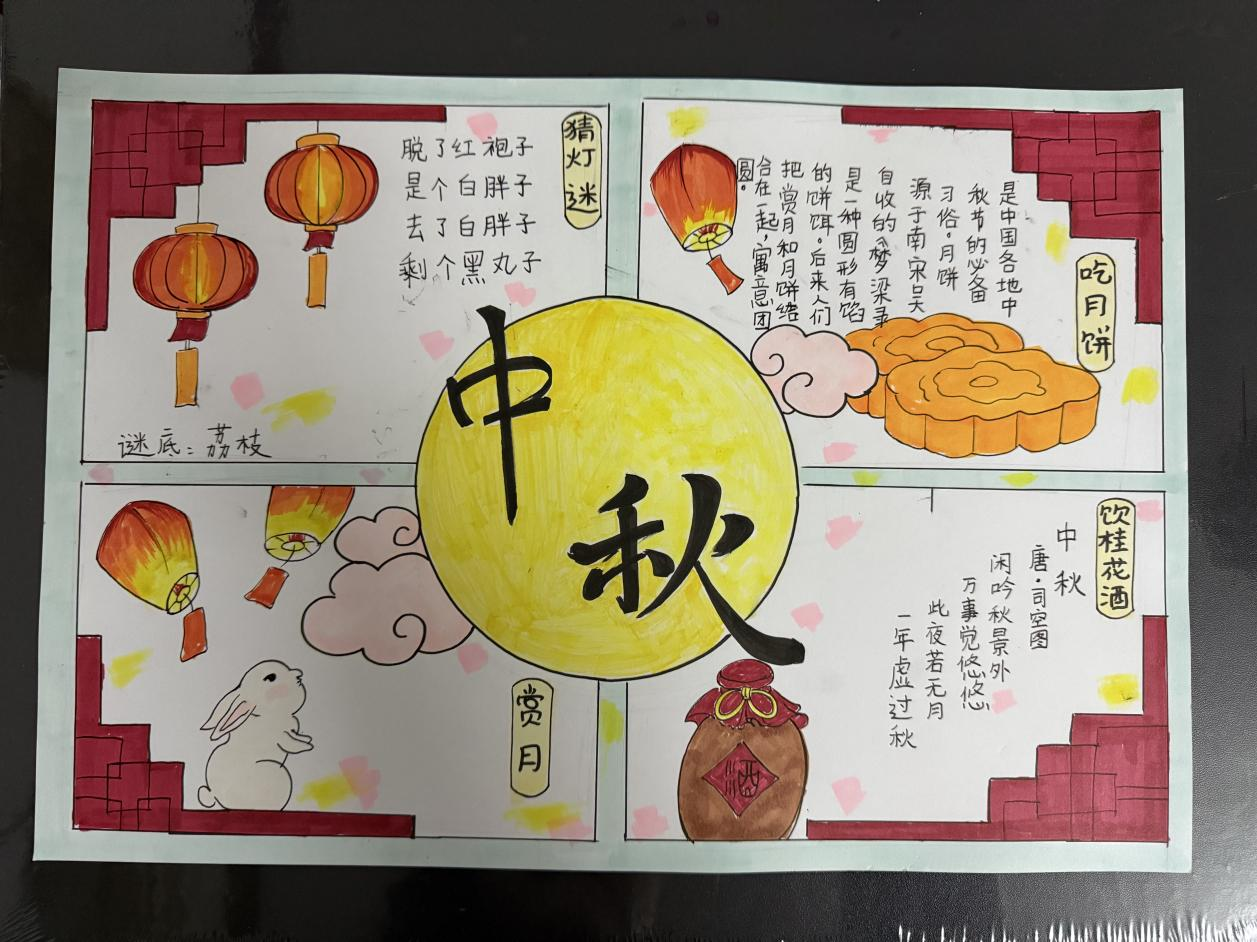 猜灯迷
脱了红袍子
是个白胖子
去了白胖子
剩个黑丸子
谜底：荔枝
吃月饼
是中国各地中
秋节的必备
习俗。月饼
源于南宋吴
自收的《梦梁录
是一种圆形有馅
的饼饵。后来人们
把赏月和月饼结
合在一起，寓意团
圆。
中
秋
赏月
饮桂花酒
中秋
唐·司空图
闲吟秋景外
万事觉悠悠
此夜若无月
一年虚过秋
酒